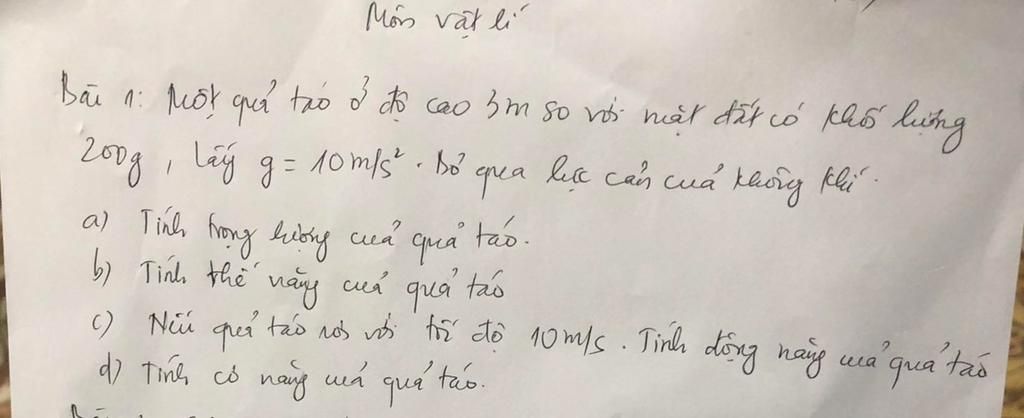 Môn vật lí
Bài 1: Một quả táo ở độ cao 3m so với mặt đất có khối lượng
200g, lấy g = 10m/s². Bỏ qua lực cản cuả không khí.
a) Tính trọng lượng cuả quả táo.
b) Tính thế năng cuả quả táo
c) Nếu quả táo rơi với tốc độ 10m/s. Tính động năng cuả quả táo
d) Tính cơ năng cuả quả táo.